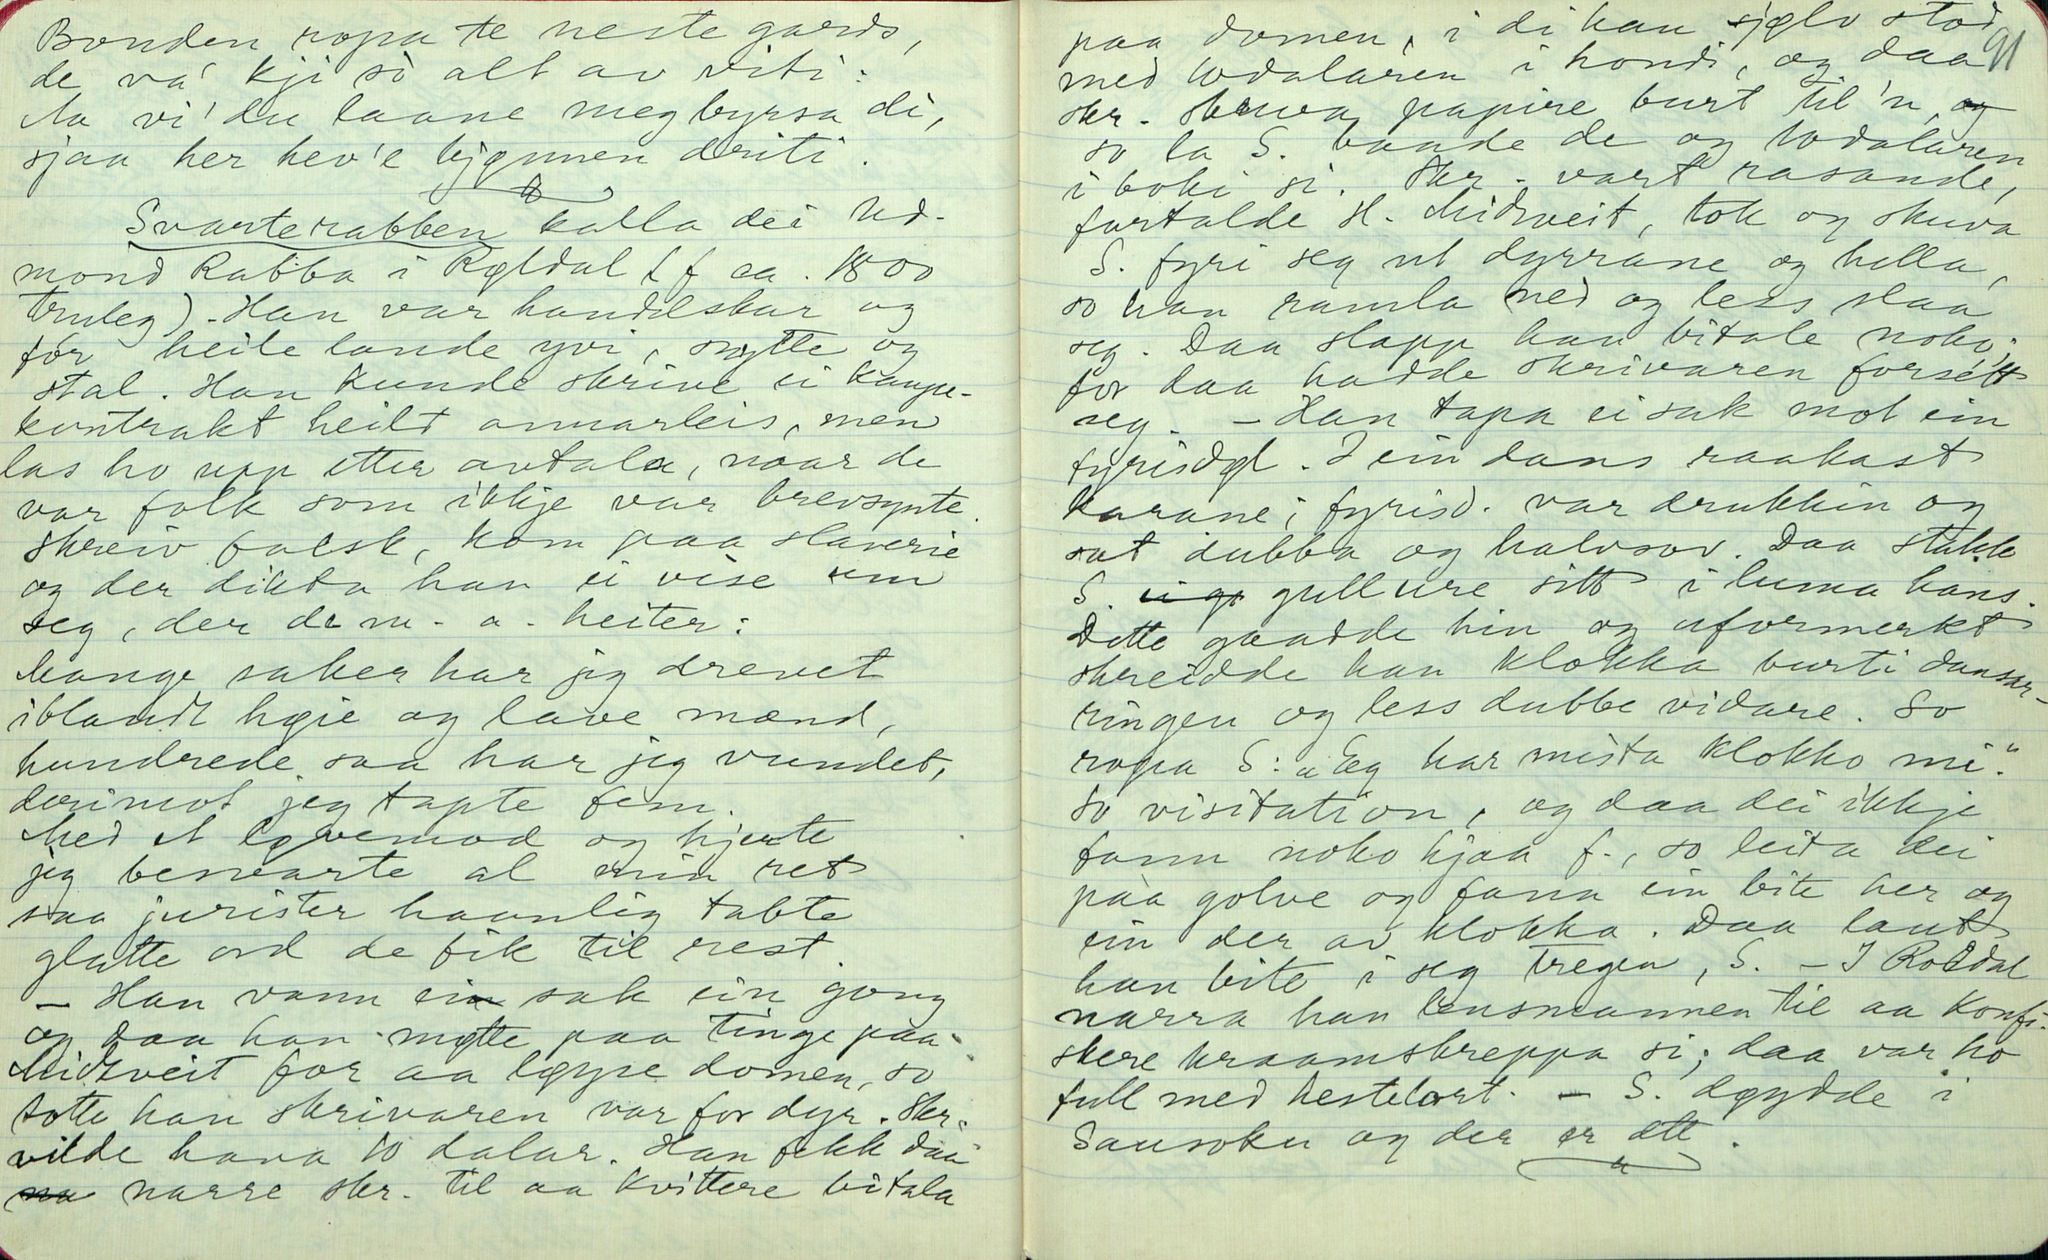 Bonden ropa te neste gards,
de va' kji so alt av viti:
Aa vi' du laane meg byrsa di,
sjaa her hev'e bjønnen driti.
Svarterabben kalla dei Aad-
mond Rabba i Røldal (f ca. 1800
truleg). Han var handelskar og
för heile lande yvi, snytte og
stal. Han kunde skrive ei kaupe-
kontrakt heilt annarleis, men
las ho upp etter avtala, naar de
var folk som ikkje var brevsynte.
Skreiv falsk, kom paa slaverie
og der dikta han ei vise um
seg, der de m. a. heiter:
Mange saker har jeg drevet
iblandt høie og lave mænd,
hundrede saa har jeg vundet,
derimot jeg tapte fem.
Med et løvemod og hjerte
jeg besvarte al min ret
saa jurister haanlig tabte
glatte ord de fik til rest.
– Han vann ein sak ein gong
og daa han møtte paa tinge paa
Midtveit for aa løyse domen, so
totte han skrivaren var for dyr. Skr.
vilde hava 10 dalar. Han fekk daa
narre skr. til aa kvittere bitala
91
paa domen, i di han sjølv stod
med todalaren i hondi, og daa
skr. skuva papire burt til'n, og
so la S. baade de og todalaren
i boki si. Skr. vart rasande,
fortalde H. Midtveit, tok og skuva
S. fyri seg ut dyrrane og hella,
so han ramla ned og less slaa
seg. Daa slapp han bitale noko;
for daa hadde skrivaren forsétt
seg. – Han tapa ei sak mot ein
fyrisdøl. I ein dans raakast
karane; fyrisd. var drukkin og
sat dubba og halvsov. Daa stakk
S. ei gu gullure sitt i luma hans.
Dette gaadde hin og uformerkt
skreidde han klokka burti dansar-
ringen og less dubbe vidare. So
ropa S: "Eg har mista klokko mi."
So visitation, og daa dei ikkje
fann noko hjaa f., so leita dei
paa golve og fann ein bite her og
ein der av klokka. Daa laut
han bite i seg tregen, S. – I Roldal
narra han lensmannen til aa konfi-
skere kraamskreppa si; daa var ho
full med hestelort. – S. døydde i
Sausoku og der er ætt.